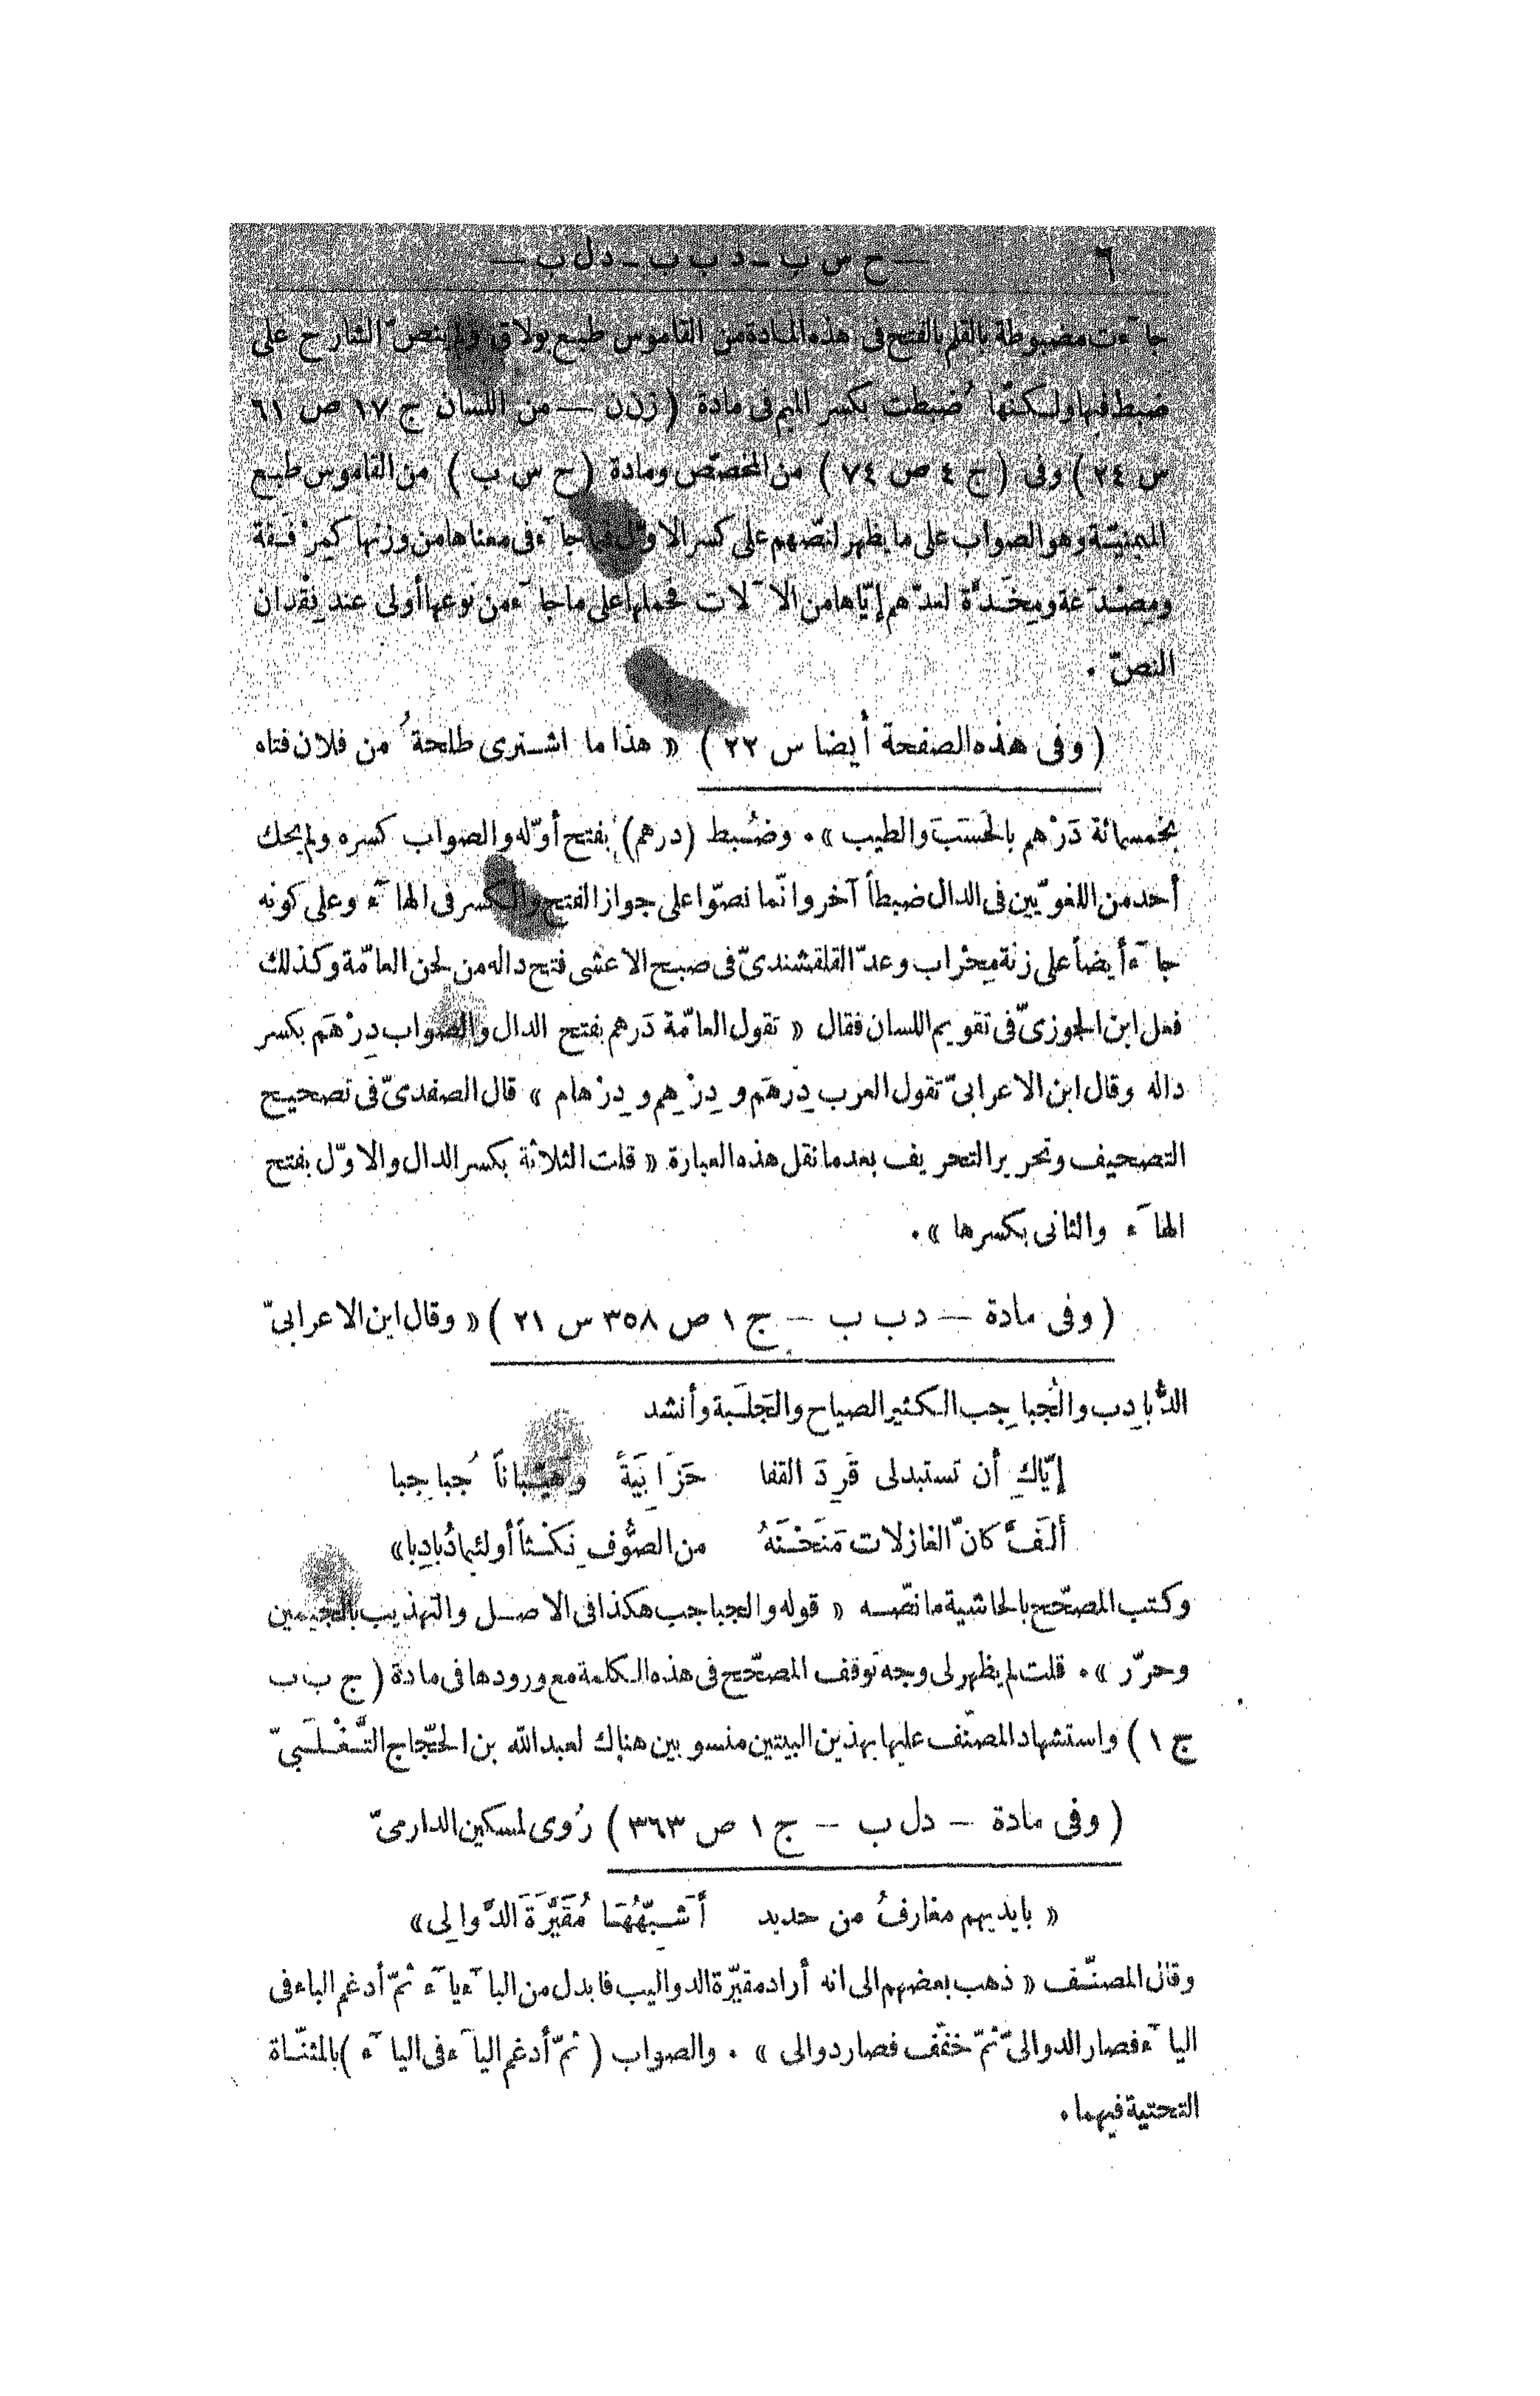 ٦ — ح س ب - د ب ب - د ل ب —
جآءت مضبوطة بالقلم بالفتح فى هذه المادة من القاموس طبع بولاق ولم ينصّ الشارح على
ضبط فيها ولكنّها ضُبطت بكسر الميم فى مادة ( ز ن ن — من اللسان ج ١٧ ص ٦١
س ٢٤ ) وفى ( ج ٤ ص ٧٤ ) من المخصّص ومادة ( ح س ب ) من القاموس طبع
الميمنيّة وهو الصواب على ما يظهر لنصّهم على كسر الاوّل فيما جآء فى معناها من وزنها كمِرْفَقة
ومِصْدَغة ومِخَدَّة لعدّهم إيّاها من الآلات فحملها على ما جآء من نوعها أولى عند فِقْدان
النصّ .
( وفى هذه الصفحة أيضا س ٢٢ ) « هذا ما اشترى طلحةُ من فلان فتاه
بخمسمائة دَرْهم بالحَسَب والطيب » . وضُبط (درهم) بفتح أوّله والصواب كسره ولم يحك
أحد من اللغويّين فى الدال ضبطاً آخر وانّما نصّوا على جواز الفتح والكسر فى الهآء وعلى كونه
جآء أيضاً على زنة مِحْراب وعدّ القلقشندىّ فى صبح الاعشى فتح داله من لحن العامّة وكذلك
فعل ابن الجوزىّ فى تقويم اللسان فقال « تقول العامّة دَرهم بفتح الدال والصواب دِرْهَم بكسر
داله وقال ابن الاعرابىّ تقول العرب دِرهَم و دِرْهِم و دِرْهام » قال الصفدىّ فى تصحيح
التصحيف وتحرير التحريف بعد ما نقل هذه العبارة « قلت الثلاثة بكسر الدال والاوّل بفتح
الهآء والثانى بكسرها » .
( وفى مادة — د ب ب — ج ١ ص ٣٥٨ س ٢١ ) « وقال ابن الاعرابىّ
الدُّبادِب والجُباجِب الكثير الصياح والجَلَبة وأنشد
إيّاكِ أن تستبدلى قَرِدَ القفا حَزَابِيَةً وهَيّباناً جُباجِبا
ألَفَّ كانّ الغازلات مَنَحْنَهُ من الصُّوف نِكْثاً أو لئيما دُبادِبا»
وكتب المصحّح بالحاشية ما نصّه « قوله والجباجب هكذا فى الاصل والتهذيب بالجيمين
وحرّر » . قلت لم يظهر لى وجه توقف المصحّح فى هذه الكلمة مع ورودها فى مادة ( ج ب ب
ج ١ ) واستشهاد المصنّف عليها بهذين البيتين منسوبين هناك لعبد الله بن الحجّاج التَّغْلَبىّ
( وفى مادة — د ل ب — ج ١ ص ٣٦٣ ) رُوى لمسكين الدارمىّ
« بايديهم مغارفُ من حديد أُشَبِّهُهَا مُقَيَّرَةَ الدَّوالِى»
وقال المصنّف « ذهب بعضهم الى انه أراد مقيّرة الدواليب فابدل من البآء يآء ثمّ أدغم الباء فى
اليآء فصار الدوالىّ ثمّ خفّف فصار دوالى » . والصواب ( ثمّ أدغم اليآء فى اليآء ) بالمثنّاة
التحتية فيهما .